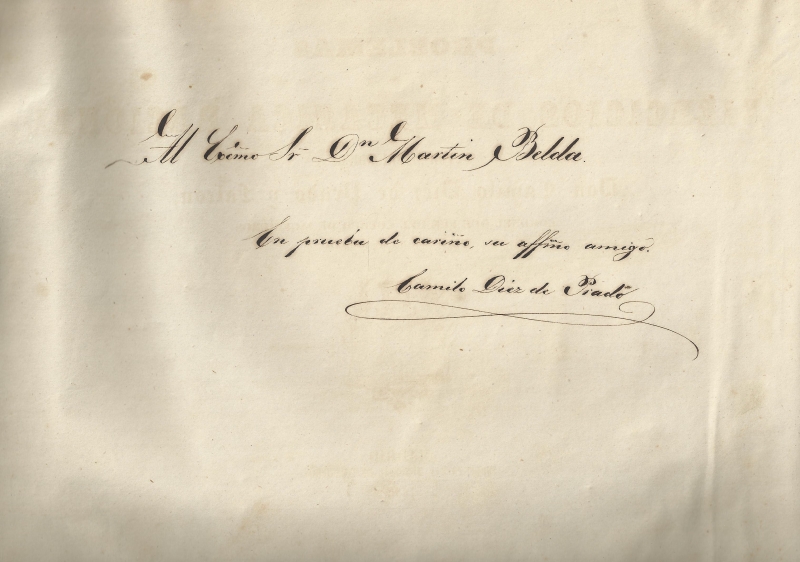 Al Excmo Sr Dn Martin Belda.
En prueba de cariño, su affmo amigo.
Camilo Diez de Prado